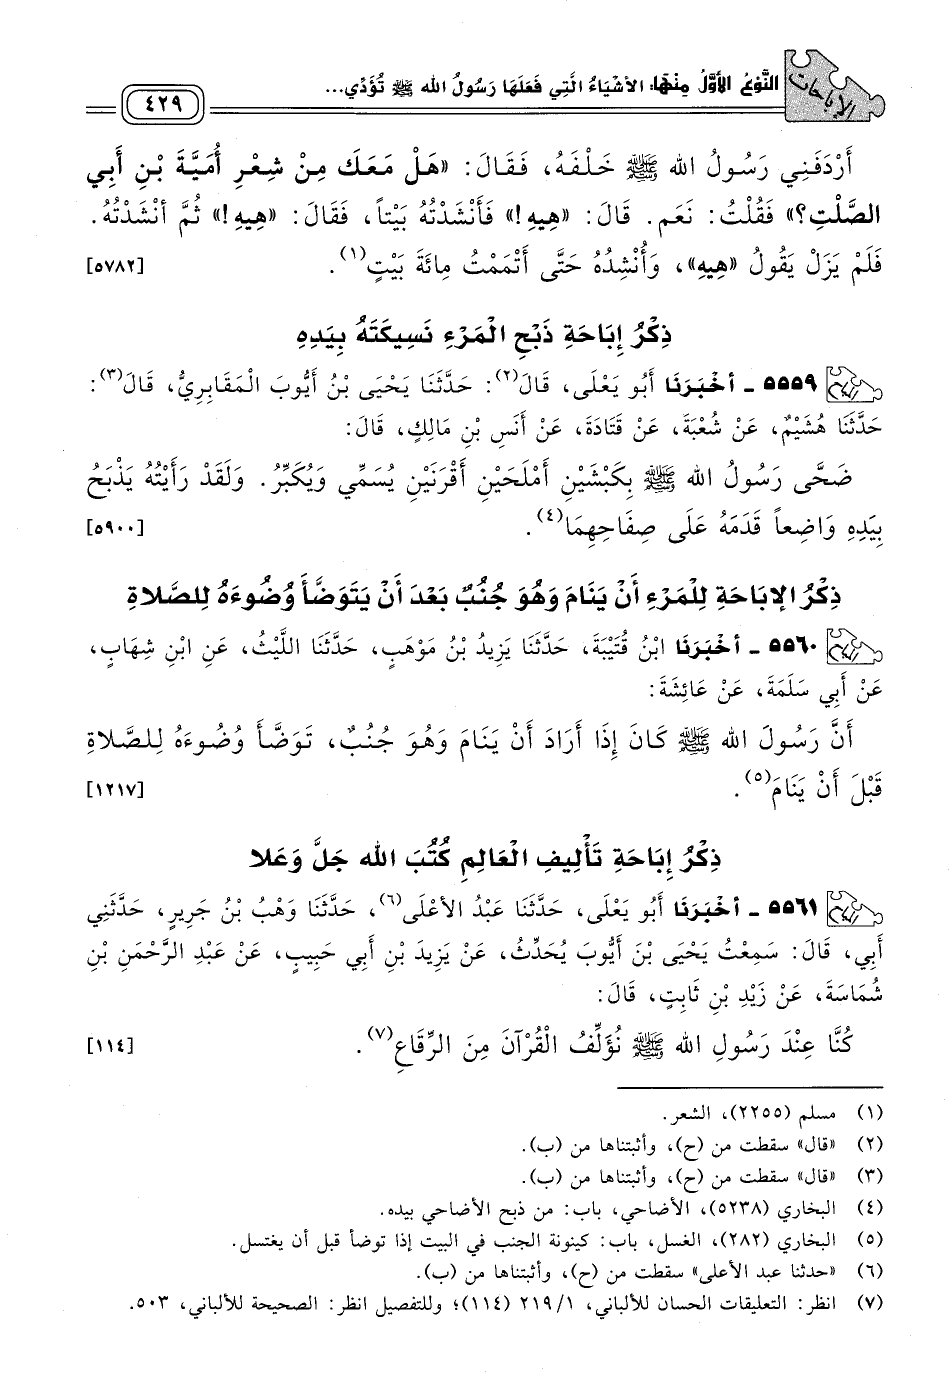 الإباحات
النَّوْعُ الأَوَّلُ مِنْهَا: الأشْيَاءُ الَّتِي فَعَلَهَا رَسُولُ الله ﷺ تُؤَدِّي...
٤٢٩
أَرْدَفَنِي رَسُولُ الله ﷺ خَلْفَهُ، فَقَالَ: «هَلْ مَعَكَ مِنْ شِعْرِ أُمَيَّةَ بْنِ أَبِي
الصَّلْتِ؟» فَقُلْتُ: نَعَم. قَالَ: «هِيهِ!» فَأَنْشَدْتُهُ بَيْتاً، فَقَالَ: «هِيهِ!» ثُمَّ أَنْشَدْتُهُ.
فَلَمْ يَزَلْ يَقُولُ «هِيهِ»، وَأُنْشِدُهُ حَتَّى أَتْمَمْتُ مِائَةَ بَيْتٍ(١). [٥٧٨٢]
ذِكْرُ إِبَاحَةِ ذَبْحِ الْمَرْءِ نَسِيكَتَهُ بِيَدِهِ
٥٥٥٩ ـ أخْبَرَنَا أَبُو يَعْلَى، قَالَ(٢): حَدَّثَنَا يَحْيَى بْنُ أَيُّوبَ الْمَقَابِرِيُّ، قَالَ(٣):
حَدَّثَنَا هُشَيْمٌ، عَنْ شُعْبَةَ، عَنْ قَتَادَةَ، عَنْ أَنَسِ بْنِ مَالِكٍ، قَالَ:
ضَحَّى رَسُولُ الله ﷺ بِكَبْشَيْنِ أَمْلَحَيْنِ أَقْرَنَيْنِ يُسَمِّي وَيُكَبِّرُ. وَلَقَدْ رَأَيْتُهُ يَذْبَحُ
بِيَدِهِ وَاضِعاً قَدَمَهُ عَلَى صِفَاحِهِمَا(٤). [٥٩٠٠]
ذِكْرُ الإبَاحَةِ لِلْمَرْءِ أَنْ يَنَامَ وَهُوَ جُنُبٌ بَعْدَ أَنْ يَتَوَضَّأَ وُضُوءَهُ لِلصَّلاةِ
٥٥٦٠ ـ أخْبَرَنَا ابْنُ قُتَيْبَةَ، حَدَّثَنَا يَزِيدُ بْنُ مَوْهَبٍ، حَدَّثَنَا اللَّيْثُ، عَنِ ابْنِ شِهَابٍ،
عَنْ أَبِي سَلَمَةَ، عَنْ عَائِشَةَ:
أَنَّ رَسُولَ الله ﷺ كَانَ إِذَا أَرَادَ أَنْ يَنَامَ وَهُوَ جُنُبٌ، تَوَضَّأَ وُضُوءَهُ لِلصَّلاةِ
قَبْلَ أَنْ يَنَامَ(٥). [١٢١٧]
ذِكْرُ إِبَاحَةِ تَأْلِيفِ الْعَالِمِ كُتُبَ الله جَلَّ وَعَلا
٥٥٦١ ـ أخْبَرَنَا أَبُو يَعْلَى، حَدَّثَنَا عَبْدُ الأَعْلَى(٦)، حَدَّثَنَا وَهْبُ بْنُ جَرِيرٍ، حَدَّثَنِي
أَبِي، قَالَ: سَمِعْتُ يَحْيَى بْنَ أَيُّوبَ يُحَدِّثُ، عَنْ يَزِيدَ بْنِ أَبِي حَبِيبٍ، عَنْ عَبْدِ الرَّحْمَنِ بْنِ
شُمَاسَةَ، عَنْ زَيْدِ بْنِ ثَابِتٍ، قَالَ:
كُنَّا عِنْدَ رَسُولِ الله ﷺ نُؤَلِّفُ الْقُرْآنَ مِنَ الرِّقَاعِ(٧). [١١٤]
(١) مسلم (٢٢٥٥)، الشعر.
(٢) «قال» سقطت من (ح)، وأثبتناها من (ب).
(٣) «قال» سقطت من (ح)، وأثبتناها من (ب).
(٤) البخاري (٥٢٣٨)، الأضاحي، باب: من ذبح الأضاحي بيده.
(٥) البخاري (٢٨٢)، الغسل، باب: كينونة الجنب في البيت إذا توضأ قبل أن يغتسل.
(٦) «حدثنا عبد الأعلى» سقطت من (ح)، وأثبتناها من (ب).
(٧) انظر: التعليقات الحسان للألباني، ١/ ٢١٩ (١١٤)؛ وللتفصيل انظر: الصحيحة للألباني، ٥٠٣.